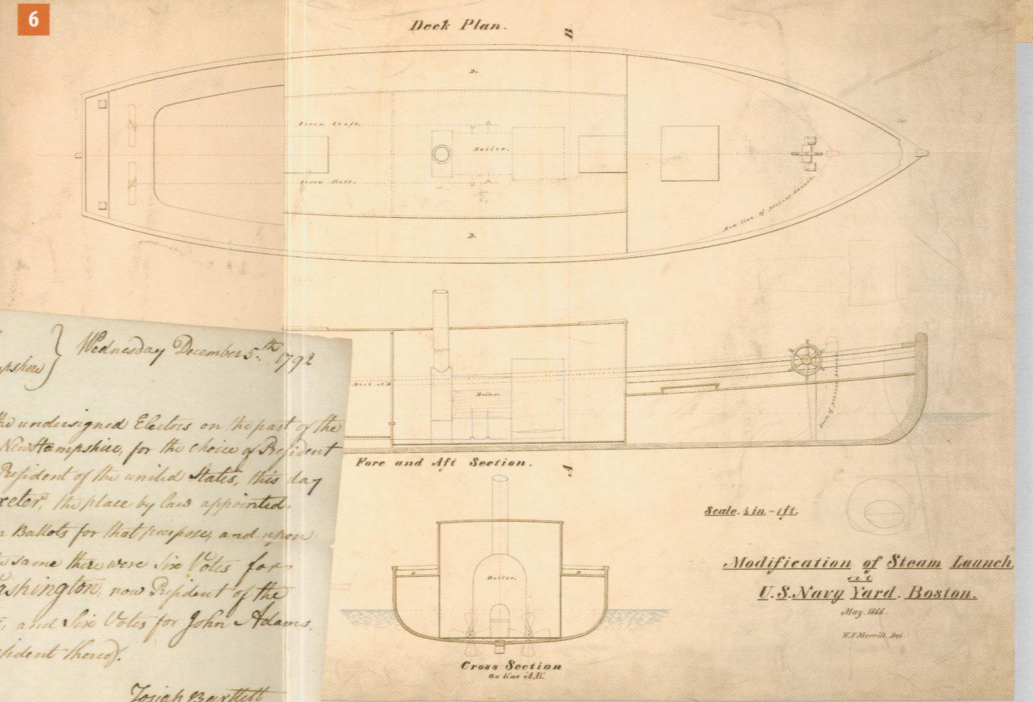 6
Deck Plan.
B
D.
Screw Shaft.
Boiler.
Screw Shaft.
D.
Boiler.
Fore and Aft Section.
A
Boiler.
Cross Section
On line A.B.
Scale. ½ in - 1 ft.
Modification of Steam Launch
at
U.S. Navy Yard. Boston.
May. 1866.
Wednesday December 5.th 1792
the undersigned Electors on the part of the
New Hampshire, for the choice of President
President of the united States, this day
xeter, the place by law appointed.
Ballots for that purpose, and upon
same there were Six Votes for
ashington, now President of the
and Six Votes for John Adams,
sident thereof.
Josiah Bartlett